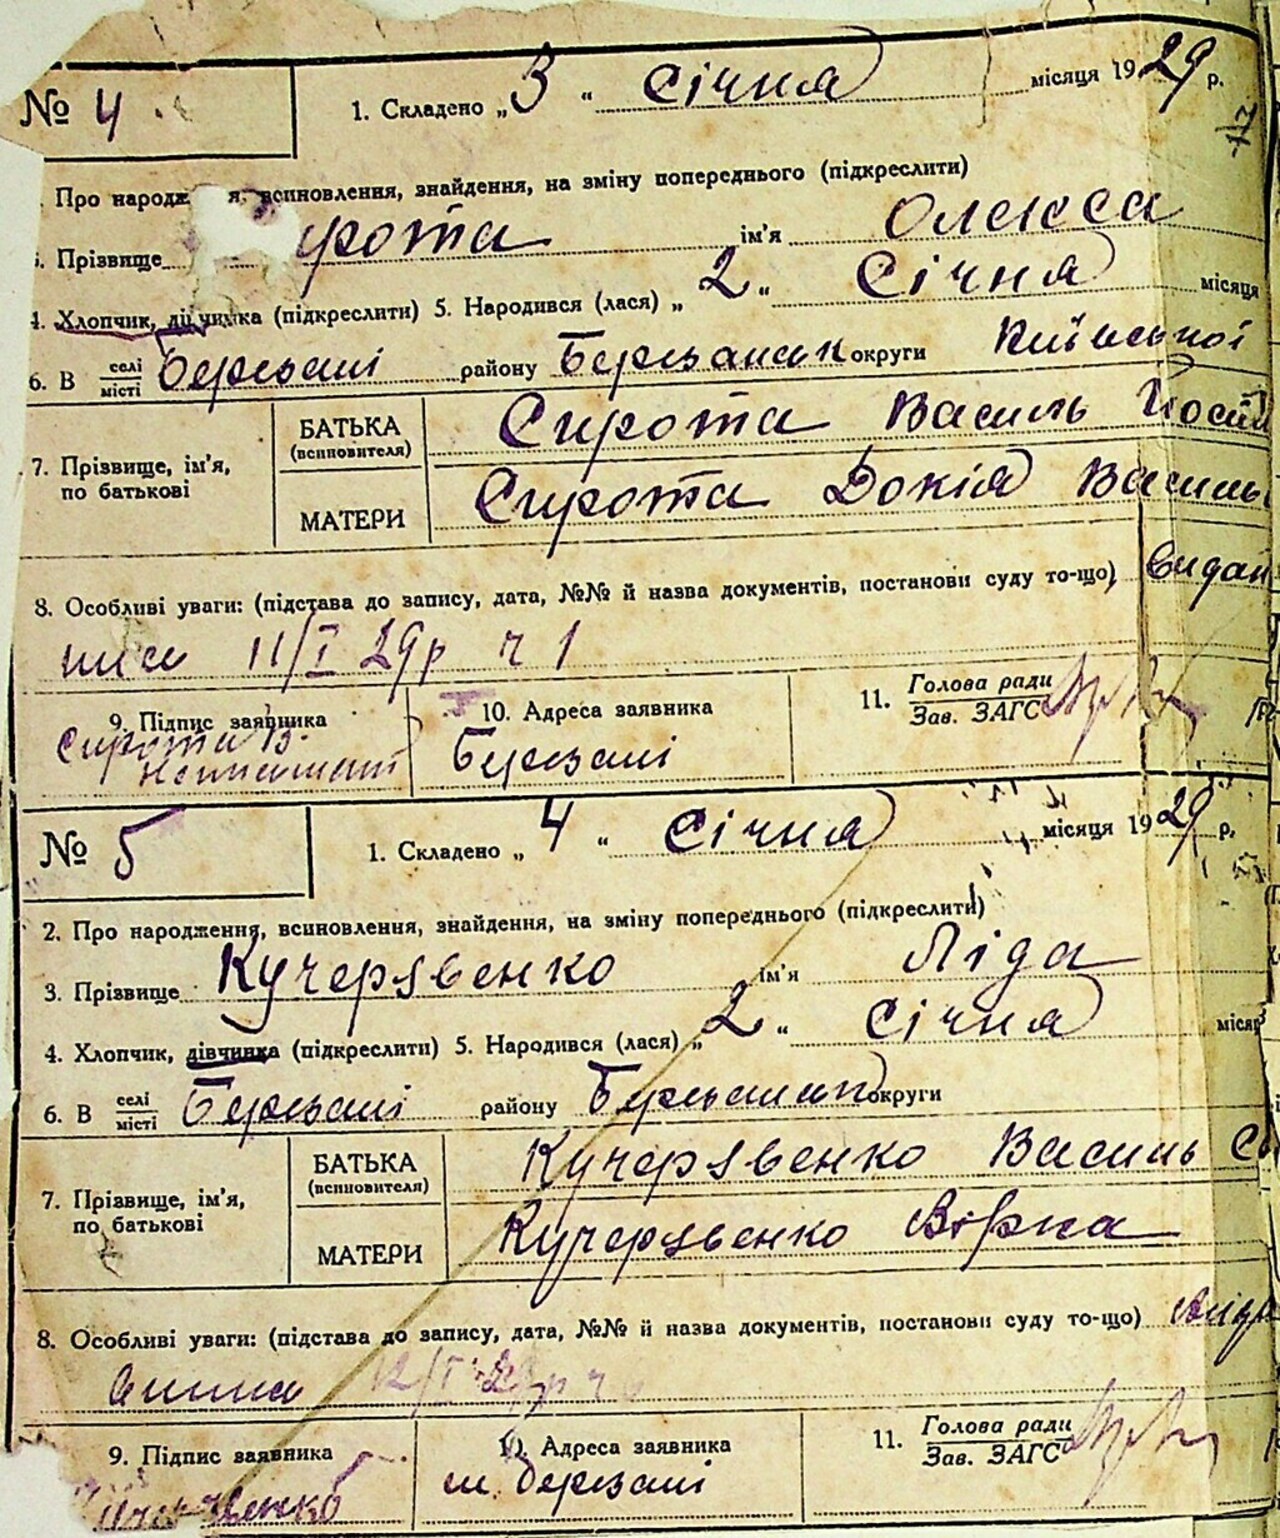 № 4 1. Складено „3“ Січня місяця 1929 р.
Про народж я, всиновлення, знайдення, на зміну попереднього (підкреслити)
Прізвище рота ім'я Олекса
4. Хлопчик, дівчинка (підкреслити) 5. Народився (лася) „2“ Січня місяця
6. В селі/місті Березані району Березанськ округи Київської
7. Прізвище, ім'я, по батькові БАТЬКА (всиновителя) Сирота Василь Йосип
МАТЕРИ Сирота Докія Василь
8. Особливі уваги: (підстава до запису, дата, №№ й назва документів, постанови суду то-що) Видан
11/I 29р ч 1
9. Підпис заявника 10. Адреса заявника 11. Голова ради
Зав. ЗАГС
Сирота В. Березані
№ 5 1. Складено „4“ Січня місяця 1929 р.
2. Про народження, всиновлення, знайдення, на зміну попереднього (підкреслити)
3. Прізвище Кучерявенко ім'я Ліда
4. Хлопчик, дівчинка (підкреслити) 5. Народився (лася) „2“ Січня місяц
6. В селі/місті Березані району Березанськ округи
7. Прізвище, ім'я, по батькові БАТЬКА (всиновителя) Кучерявенко Василь
МАТЕРИ Кучерявенко Вірка
8. Особливі уваги: (підстава до запису, дата, №№ й назва документів, постанови суду то-що)
12/I 29р ч
9. Підпис заявника 10. Адреса заявника 11. Голова ради
Зав. ЗАГС
м. Березані